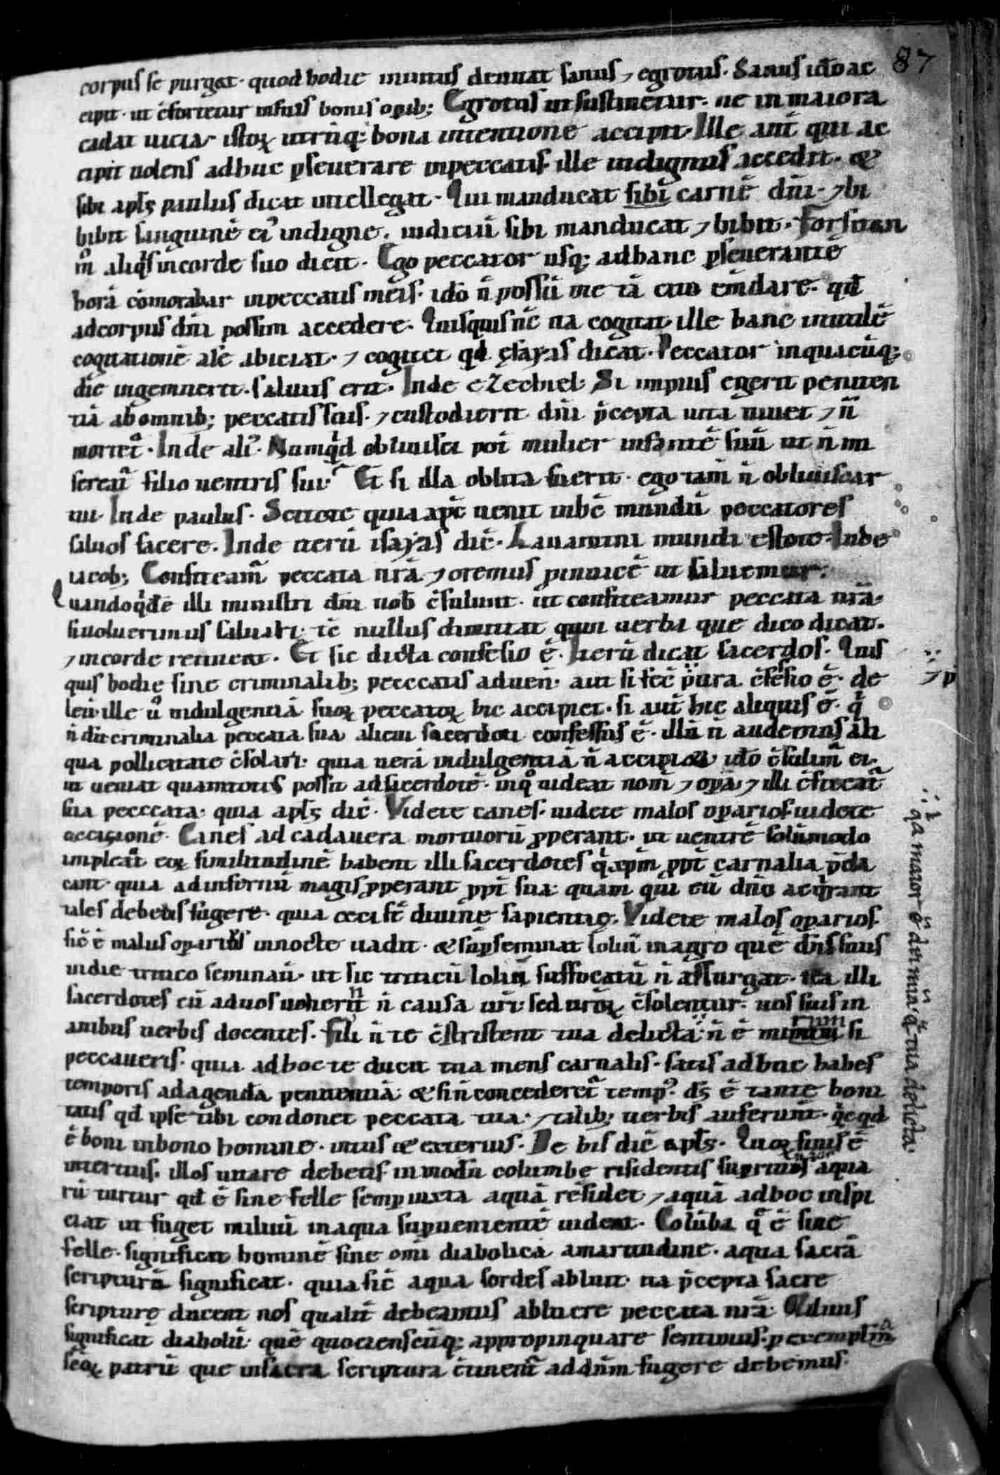 87
corpus se purgat · quod hodie intrius deuuat sanus ⁊ egrotus · Sanus ido ac
cipit · ut c̄fortetur in suis bonis opib; Egrotus ut sustinetur · ne in maiora
cadat uicia · istoꝝ utrūq; bona intentione accipit · Ille aut̄ qui ac
cipit uolens adhuc ꝑseuerare in peccatis ille indignus accedit · &
sibi apl̄s paulus dicat intellegat · Qui manducat sibi carnē dn̄i · ⁊ bi
bibit sanguinē ei᷒ indigne · iudiciū sibi manducat ⁊ bibit · Forsitan
m̄ aliq̄s in corde suo dicit · Ego peccator usq; ad hanc ꝑseuerante
horā cōmorabar in peccatis meis · ido n̄ possū me tā cito em̄dare · qd̄
ad corpus dn̄i possim accedere · Quisquis n̄c ita cogitat ille hanc inutilē
cogitationē a se abiciat · ⁊ cogitet qd̄ ęsayas dicat · Peccator in quacūq;
die ingemuerit · saluus erit · Inde ezechiel · Si impius egerit peniten
tiā ab omnib; peccatis suis · ⁊ custodierit dn̄i p̄cepta uita uiuet ⁊ n̄
moriet᷑ · Inde ali᷒ · Numqd̄ obliuisci pot̄ mulier infantē suū ut n̄ mi
sereat᷑ filio uentris sui · Et si illa oblita fuerit · ego tam̄ n̄ obliuiscar
tui · Inde paulus · Scitote quia xp̄c uenit in hc̄ mundū peccatores
saluos facere · Inde iterū isayas dic̄ · Lauamini mundi estote · Inde
iacob; Confiteam̄ peccata n̄rā ⁊ oremus ꝓ inuicē ut saluemur ·
Quandoqdē illi ministri dn̄i uob̄ c̄sulunt · ut confiteamur peccata n̄ra ·
si uoluerimus saluari · tc̄ nullus dimittat quin uerba que dico dicat ·
⁊ in corde retineat · Et sic dicta confesio ē · Iterū dicat sacerdos · Quis
quis hodie sine criminalib; peccatis aduen · aut si fēc pura c̄fessio ē · de
leu ille u᷒ indulgentiā suoꝝ peccatoꝝ hic accipiet · si aut̄ hic aliquis ē · q̄
n̄ dix̄ criminalia peccata sua alicui sacerdoti confessus ē · illū n̄ audemus ali
qua pollicitate c̄solari · quia uerā indulgentiā n̄ accipiet ido c̄sulim᷒ ei
ut ueniat quantotius possit ad sacerdotē · in quo uideat nom̄ ⁊ opa ⁊ illi c̄fiteat᷑
sua pecccata · quia apl̄s dic̄ · Videte canes · uidete malos oꝑarios uidete
occisionē · Canes ad cadauera mortuorū ꝓperant · ut uentrē solūmodo
impleat᷑ eoꝝ similitudinē habent illi sacerdotes q̄ xp̄m ꝓpt̄ carnalia p̄di
cant · quia ad infernū magis ꝓperant ꝓpt̄ sua · quam qui cū dn̄o acq̄rant
tales debetis fugere · quia ceci st̄ diuine sapientię · Videte malos oꝑarios ·
sic̄ ē malus oꝑarius in nocte uadit · & sup̄seminat loliū in agro quē dn̄s suus
in die tritico seminauit · ut sic triticū loliū suffocatū n̄ assurgat · ita illi
sacerdotes cū ad uos uenerīt n̄ causa u̅r̅i sed u̅r̅oꝝ c̄solentur · uos suis in
anibus uerbis docentes · Fili n̄ te c̄tristent tua delicta · n̄ ē mirum si
peccaueris · quia ad hoc te ducit tua mens carnalis · satis adhuc habes
temporis ad agenda penitentiā · & si n̄ concederet᷑ temp᷒ · ds̄ ē tante boni
tatis qd̄ ipse tibi condonet peccata tua · ⁊ talib; uerbis auferunt · qc̄qd
ē boni in bono homine · intus & exterius · De his dic̄ apl̄s · Quoꝝ finis ē
interitus · illos uitare debetis in modū columbe residentis super aqua
rū turtur qd̄ ē sine felle semꝑ iuxta aquā residet ⁊ aquā ad hoc inspi
ciat ut fuget miluū in aqua superuenientē uident · Colūba q̄ ē sine
felle · significat hominē sine om̄i diabolica amaritudine · aqua sacrā
scripturā significat · quia sic̄ aqua sordes abluit · ita p̄cepta sacre
scripture ducent nos qualit̄ debeamus abluere peccata n̄ra · Miluus
significat diabolū · quē quocienscūq; appropinquare sentimus · ꝑ exemplū
seoꝝ patrū que in sacra scriptura c̄tinent᷑ ad dn̄m fugere debemus ·
qa maior ē dei mīa · q̄ tua delicta ·